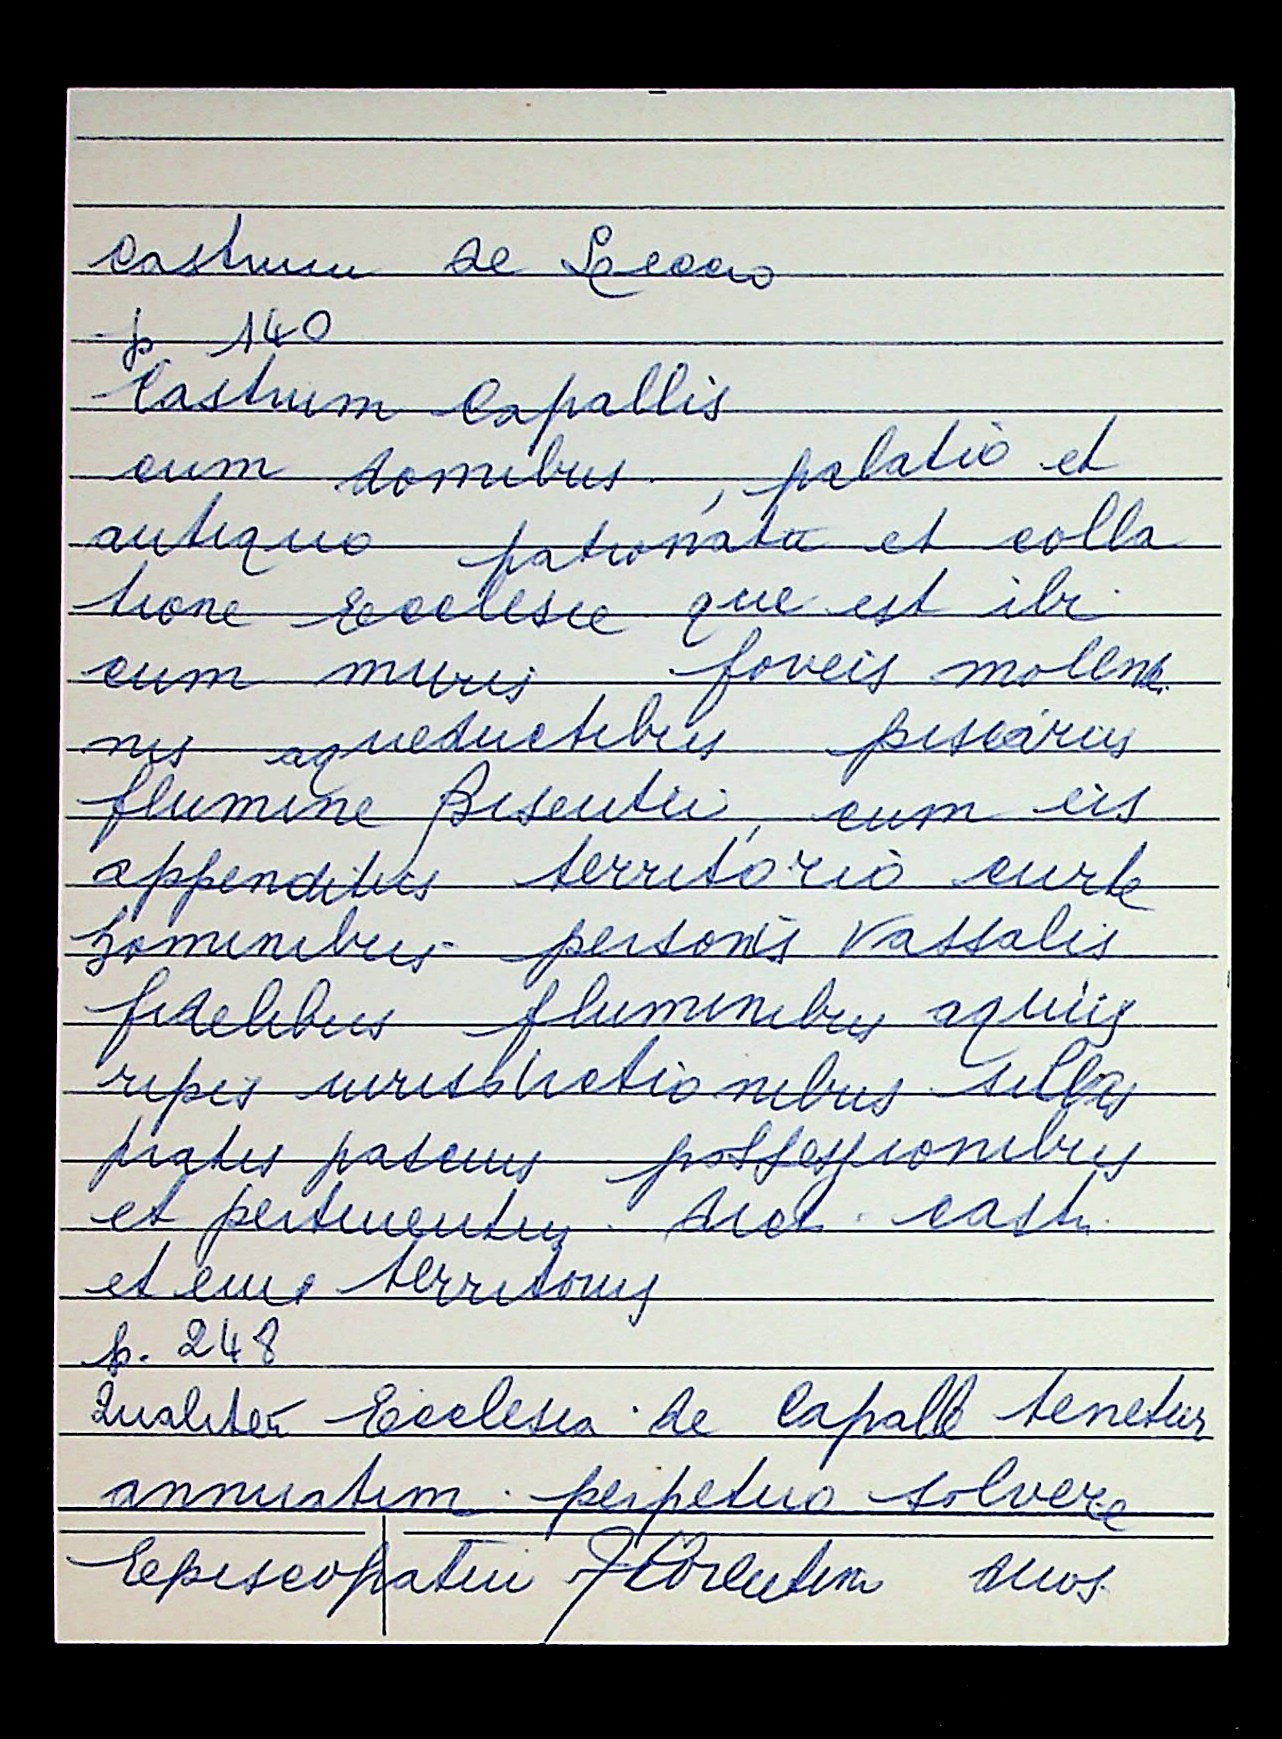 Castrum de Lecco
p 140
Castrum Capallis
cum domibus, palatio et
antiquo patronatu et colla
tione Ecclesie que est ibi
cum muris foveis molen
nis aqueductibus piscariis
flumine Bisentii, cum eis
appenditiis territorio curte
hominibus personis vassalis
fidelibus fluminibus aquis
ripis iurisdictionibus silbis
pratis pascuis possessionibus
et pertinentiis dict. castri
et eius territoriis
p. 248
Qualiter Ecclesia de Capalle tenetur
annuatim perpetuo solvere
Episcopatui Florentino duos